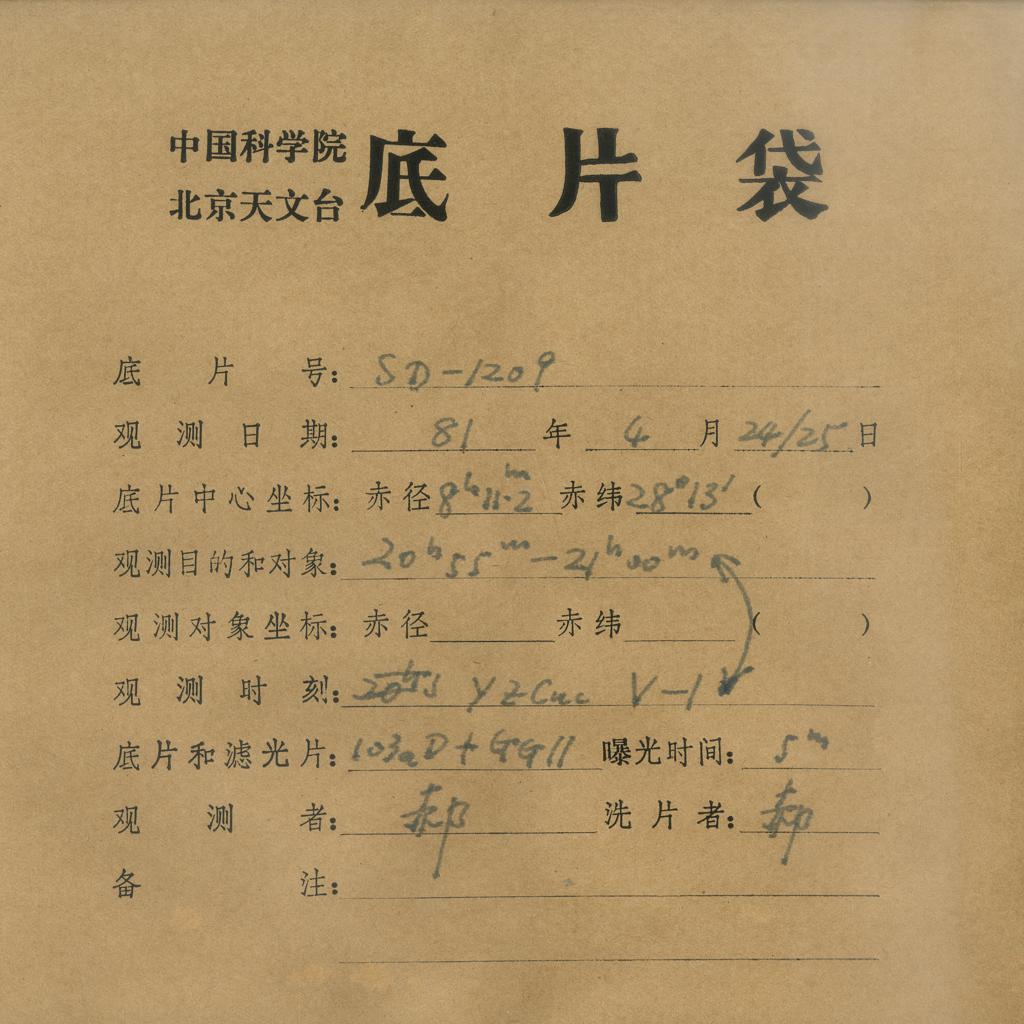 中国科学院
北京天文台
底片袋
底片号: SD-1209
观测日期: 81年 4月 24/25日
底片中心坐标: 赤径 8h11m.2 赤纬 28°13′ ( )
观测目的和对象: 20h55m-21h00m
观测对象坐标: 赤径 赤纬 ( )
观测时刻: 20h55 YZCnc V-1
底片和滤光片: 103aD+GG11 曝光时间: 5m
观测者: 郝 洗片者: 郝
备注: